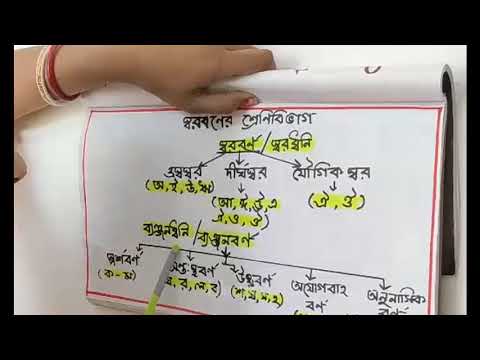 স্বরবর্ণের শ্রেণিবিভাগ
স্বরবর্ণ / স্বরধ্বনি
হ্রস্বস্বর দীর্ঘস্বর যৌগিক স্বর
(অ, ই, উ, ঋ) (আ, ঈ, ঊ, এ (ঐ, ঔ)
ঐ, ও, ঔ)
ব্যঞ্জনধ্বনি / ব্যঞ্জনবর্ণ
স্পর্শবর্ণ অন্তঃস্থবর্ণ উষ্মবর্ণ অযোগবাহ অনুনাসিক
(ক - ম) র, ল, ব) (শ, ষ, স, হ) বর্ণ বর্ণ